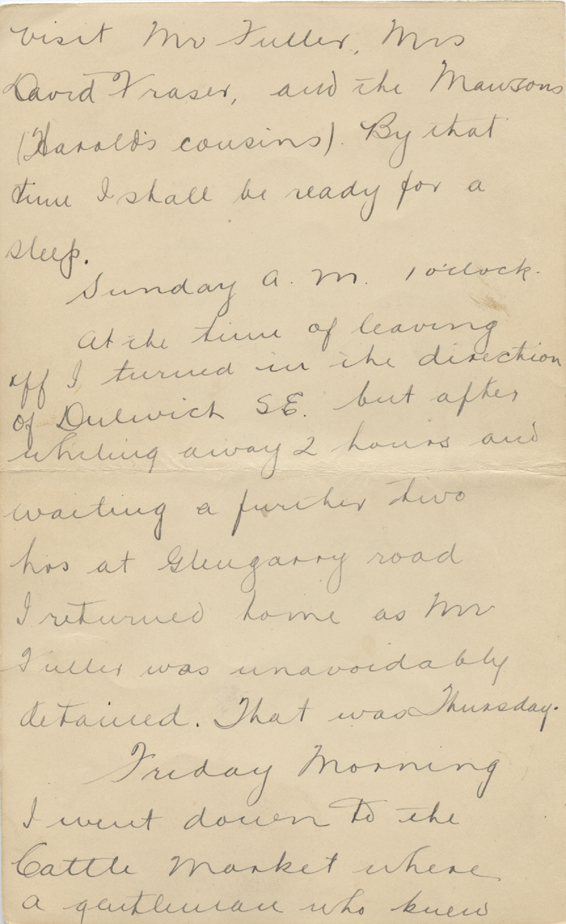 visit Mr Fuller, Mrs
David Fraser, and the Mawsons
(Harold's cousins). By that
time I shall be ready for a
sleep.
Sunday A. M. 1 o'clock.
At the time of leaving
off I turned in the direction
of Dulwich S.E. but after
whiling away 2 hours and
waiting a further two
hrs at Glengarry road
I returned home as Mr
Fuller was unavoidably
detained. That was Thursday.
Friday Morning
I went down to the
Cattle Market where
a gentleman who knew